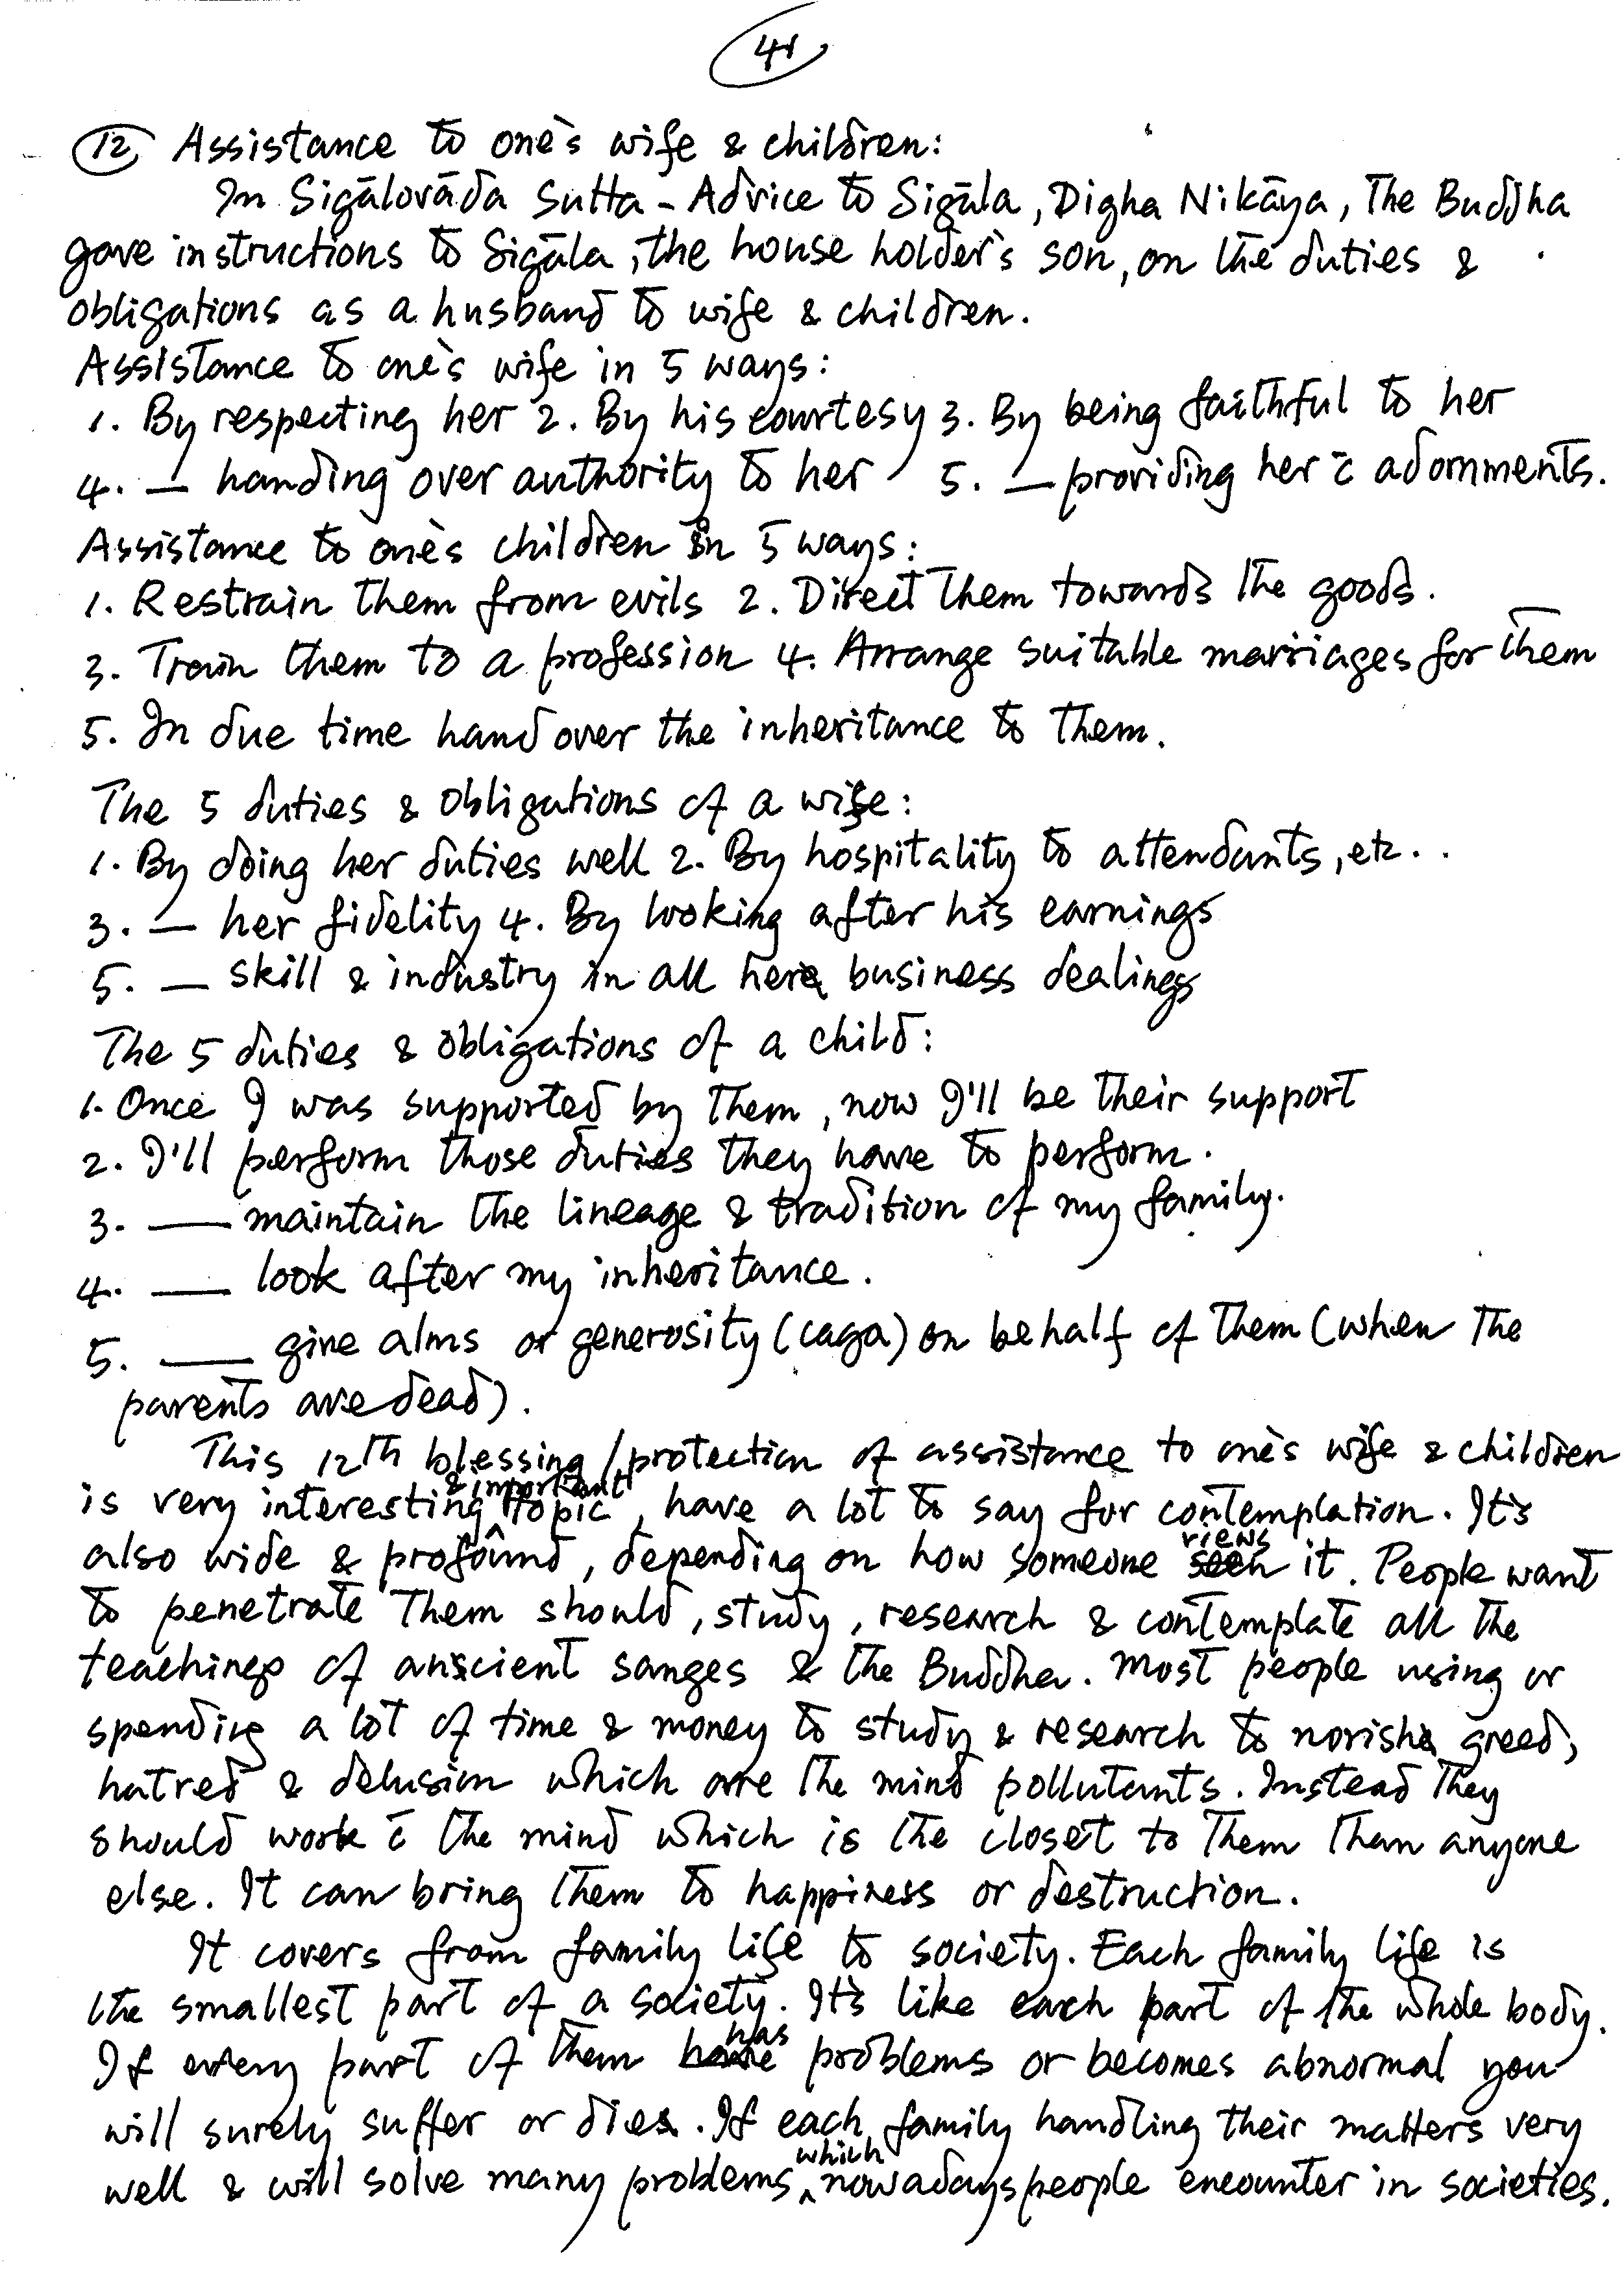 41
12 Assistance to one's wife & children:
In Sigālovāda Sutta - Advice to Sigāla, Digha Nikāya, The Buddha
gave instructions to Sigāla, the house holder's son, on the duties &
obligations as a husband to wife & children.
Assistance to one's wife in 5 ways:
1. By respecting her 2. By his courtesy 3. By being faithful to her
4. — handing over authority to her 5. — providing her c̄ adornments.
Assistance to one's children in 5 ways:
1. Restrain them from evils 2. Direct them towards the goods.
3. Train them to a profession 4. Arrange suitable marriages for them
5. In due time hand over the inheritance to them.
The 5 duties & obligations of a wife:
1. By doing her duties well 2. By hospitality to attendants, etc..
3. — her fidelity 4. By looking after his earnings
5. — skill & industry in all her business dealings
The 5 duties & obligations of a child:
1. Once I was supported by them, now I'll be their support
2. I'll perform those duties they have to perform.
3. — maintain the lineage & tradition of my family.
4. — look after my inheritance.
5. — give alms or generosity (caga) on behalf of them (when the
parents are dead).
This 12th blessing/protection of assistance to one's wife & children
is very interesting & important topic, have a lot to say for contemplation. It's
also wide & profound, depending on how someone views it. People want
to penetrate them should, study, research & contemplate all the
teachings of anscient sanges & the Buddha. Most people using or
spending a lot of time & money to study & research to norish greed,
hatred & delusion which are the mind pollutants. Instead they
should work c̄ the mind which is the closet to them than anyone
else. It can bring them to happiness or destruction.
It covers from family life to society. Each family life is
the smallest part of a society. It's like each part of the whole body.
If every part of them has problems or becomes abnormal you
will surely suffer or dies. If each family handling their matters very
well & will solve many problems which nowadays people encounter in societies.